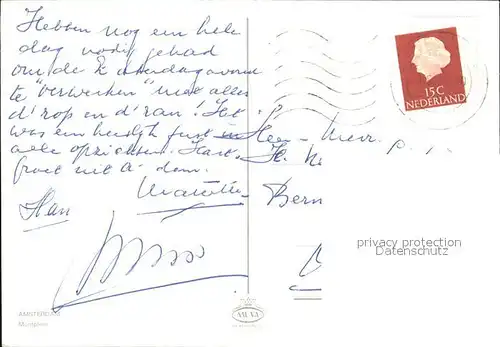 Hebben nog een hele
dag nodig gehad
om de Zaterdagavond
te "verwerken" met alles
d'rop en d'ran! Het
was een heerlijk feest in
alle opzichten. Hart.
Groet uit A-dam.
Han
Heer - Mevr.
Bern
15C
NEDERLAND
privacy protection
Datenschutz
AMSTERDAM
Muntplein